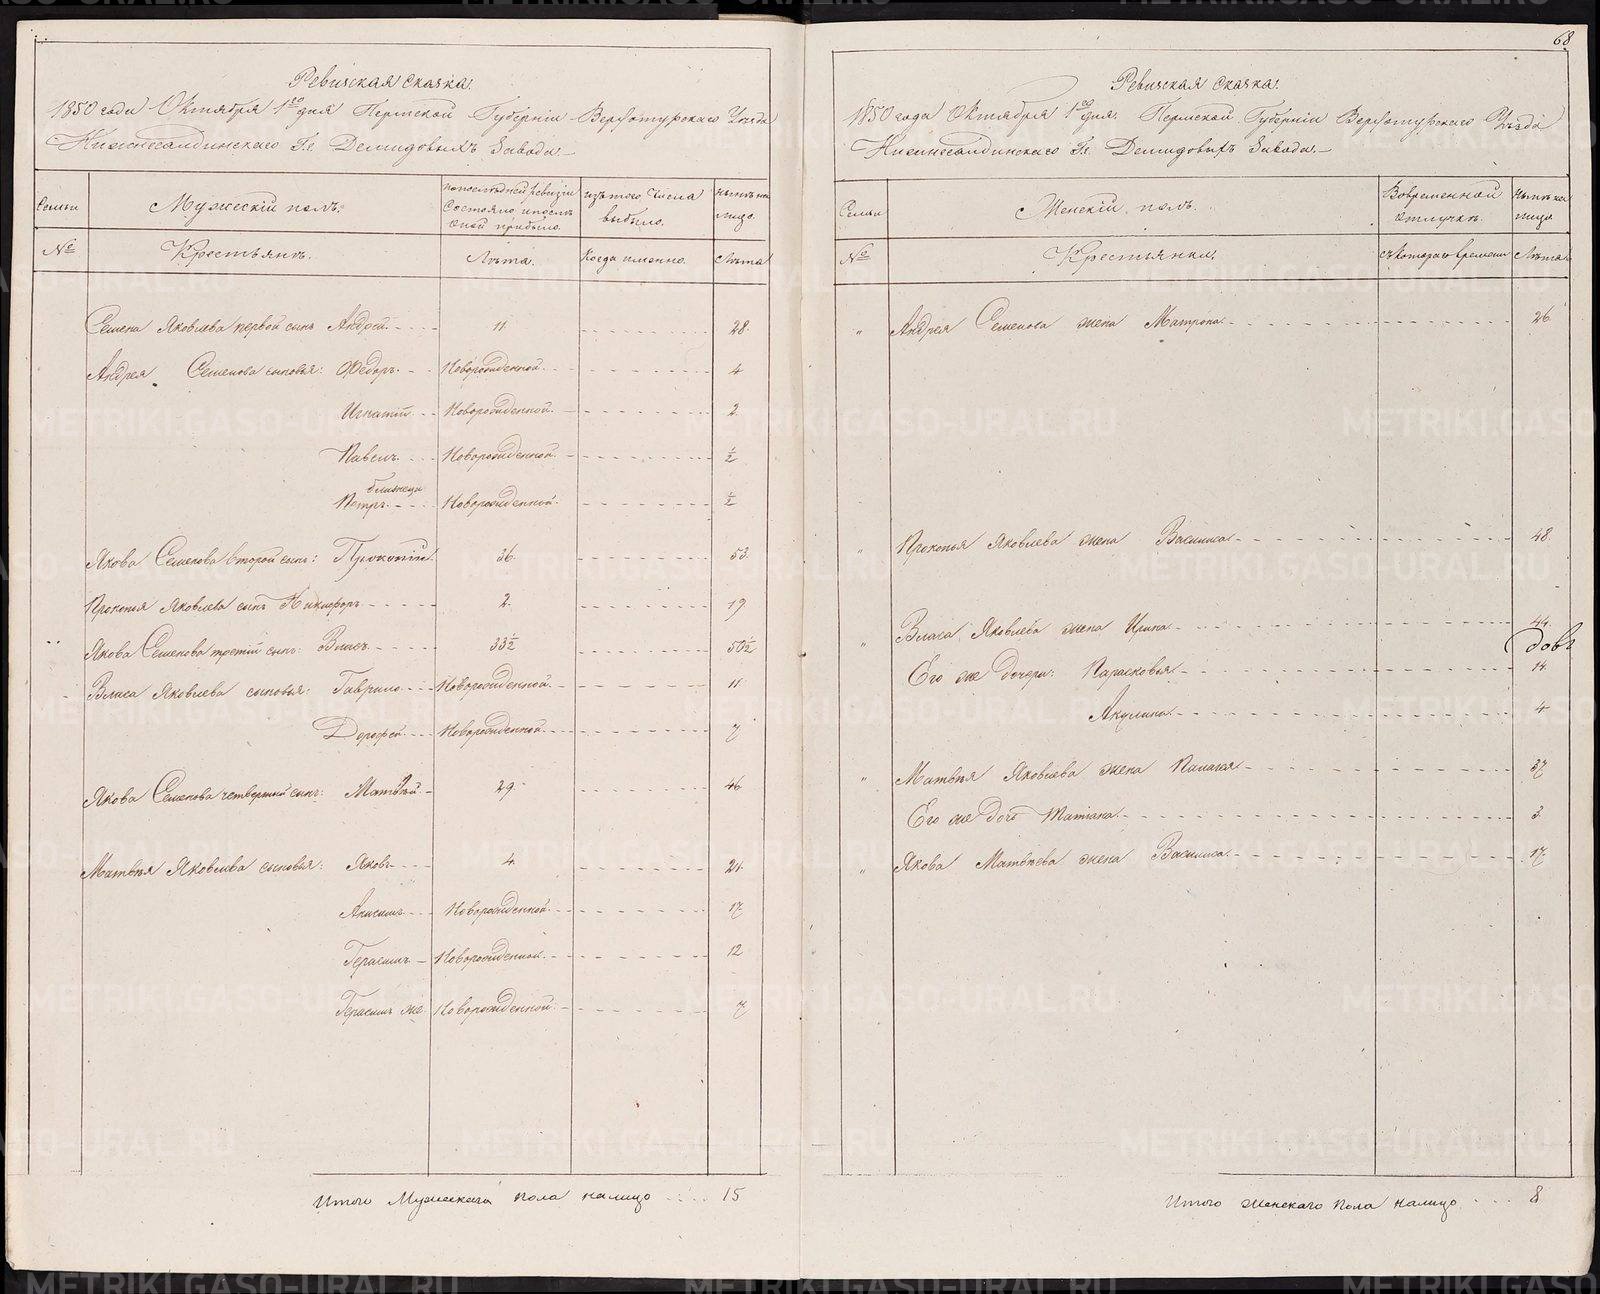 Ревизская сказка.
1850 года Октября 1го дня Пермской Губернiи Верхотурскаго Уезда
Нижнесалдинскаго Гг. Демидовыхъ Завода.
Семьи
Мужескiй полъ.
по последней ревизiи состояло и после оной прибыло.
изъ того числа выбыло.
ныне на лицо.
№
Крестьянъ.
Лета.
Когда именно.
Лета
Семена Яковлева первой сынъ Андрей. 11. 28.
Андрея Семенова сыновья: Федоръ. Новорожденной. 4
Игнатiй. Новорожденной. 2
Павелъ. Новорожденной. ½
близнецы
Петръ. Новорожденной. ½
Якова Семенова второй сынъ: Прокопiй. 36. 53.
Прокопья Яковлева сынъ Никифоръ 2. 19
Якова Семенова третiй сынъ: Власъ. 33½ 50½
Власа Яковлева сыновья: Гаврило Новорожденной. 11
Дорофей. Новорожденной. 7
Якова Семенова четвертый сынъ: Матвей 29 46
Матвея Яковлева сыновья: Яковъ 4. 21.
Анисимъ Новорожденной 17
Герасимъ Новорожденной 12
Герасимъ же Новорожденной 7
Итого Мужескаго пола налицо 15
68
Ревизская сказка.
1850 года Октября 1го дня. Пермской Губернiи Верхотурскаго Уезда
Нижнесалдинскаго Гг. Демидовыхъ Завода.
Семьи
Женскiй полъ.
Во временной отлучке.
Ныне на лицо
№
Крестьянки.
съ котораго времени
Лета
" Андрея Семенова жена Матрона 26
" Прокопья Яковлева жена Васишиса 48.
" Власа Яковлева жена Ирина 44.
Его же дочери: Парасковья 14.
Акулина 4
" Матвея Яковлева жена Палагея 37
Его же дочь Татiана. 3
" Якова Матвеева жена Василиса 17
Итого женскаго пола налицо 8
METRIKI.GASO-URAL.RU